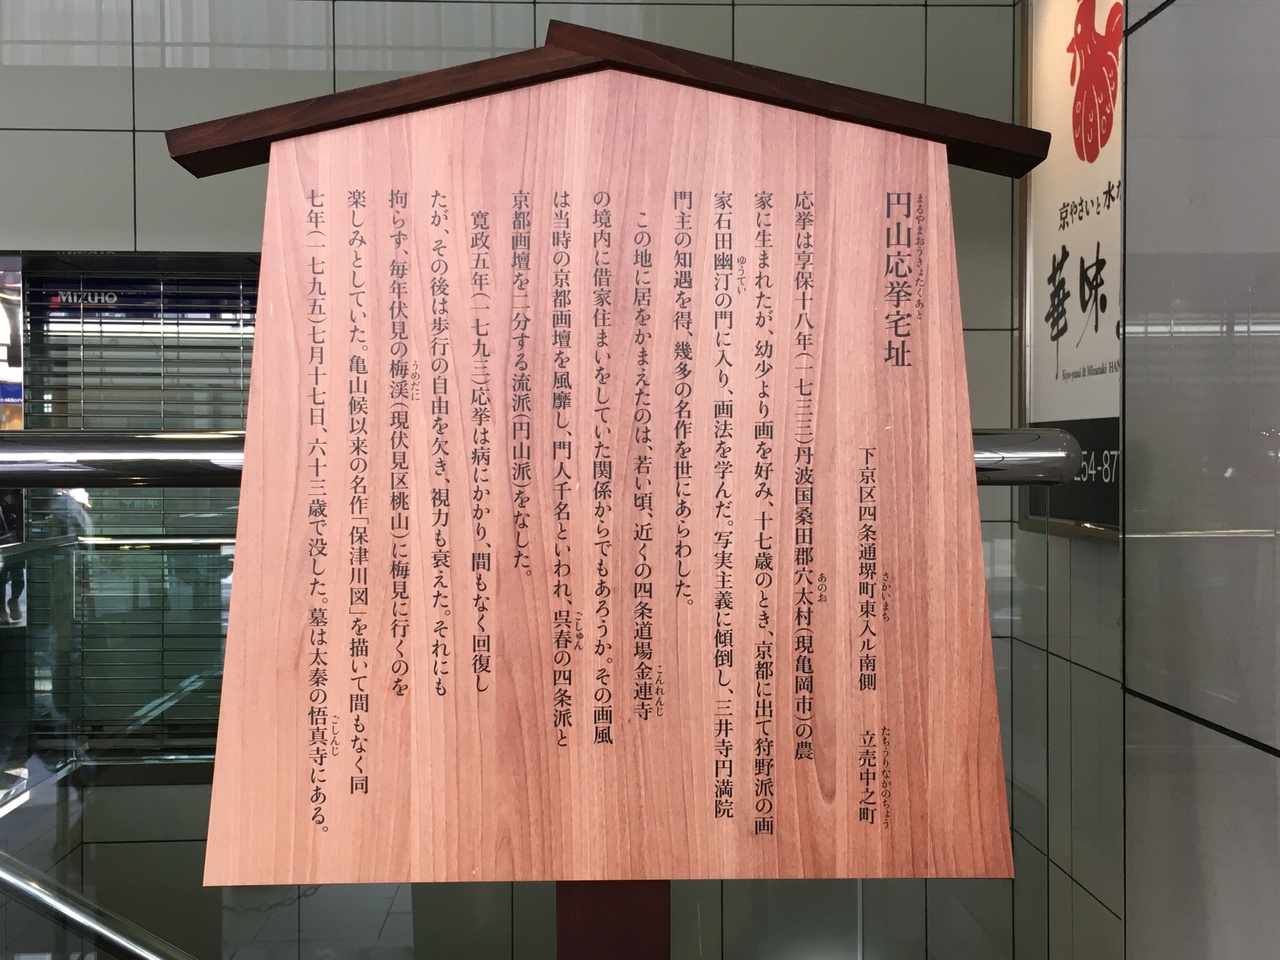 円山応挙宅址
まるやまおうきょたくあと
下京区四条通堺町東入ル南側 立売中之町
さかいまち
たちうりなかのちょう
応挙は享保十八年(一七三三)丹波国桑田郡穴太村(現亀岡市)の農
あのお
家に生まれたが、幼少より画を好み、十七歳のとき、京都に出て狩野派の画
家石田幽汀の門に入り、画法を学んだ。写実主義に傾倒し、三井寺円満院
ゆうてい
門主の知遇を得、幾多の名作を世にあらわした。
この地に居をかまえたのは、若い頃、近くの四条道場金連寺
こんれんじ
の境内に借家住まいをしていた関係からでもあろうか。その画風
は当時の京都画壇を風靡し、門人千名といわれ、呉春の四条派と
ごしゅん
京都画壇を二分する流派(円山派)をなした。
寛政五年(一七九三)応挙は病にかかり、間もなく回復し
たが、その後は歩行の自由を欠き、視力も衰えた。それにも
拘らず、毎年伏見の梅渓(現伏見区桃山)に梅見に行くのを
うめだに
楽しみとしていた。亀山候以来の名作「保津川図」を描いて間もなく同
七年(一七九五)七月十七日、六十三歳で没した。墓は太秦の悟真寺にある。
ごしんじ
MIZUHO
京やさいと水
華味
Kyo-yasai & Mizutaki HAN
254-87